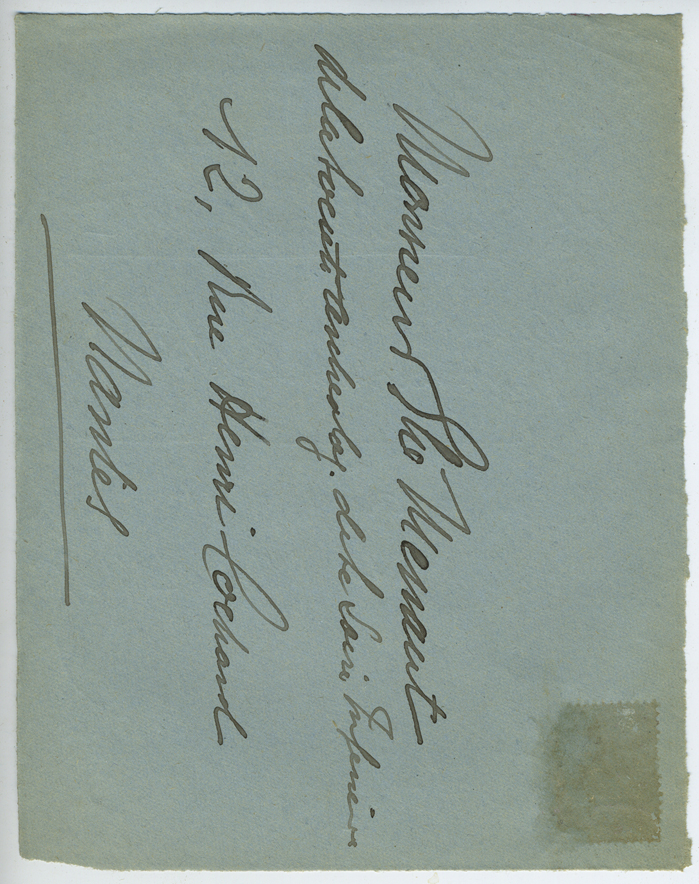 Monsieur Sho Menaut
de la société archéolog. de la Loire Inférieure
12, Rue Henri Cochard
Nantes